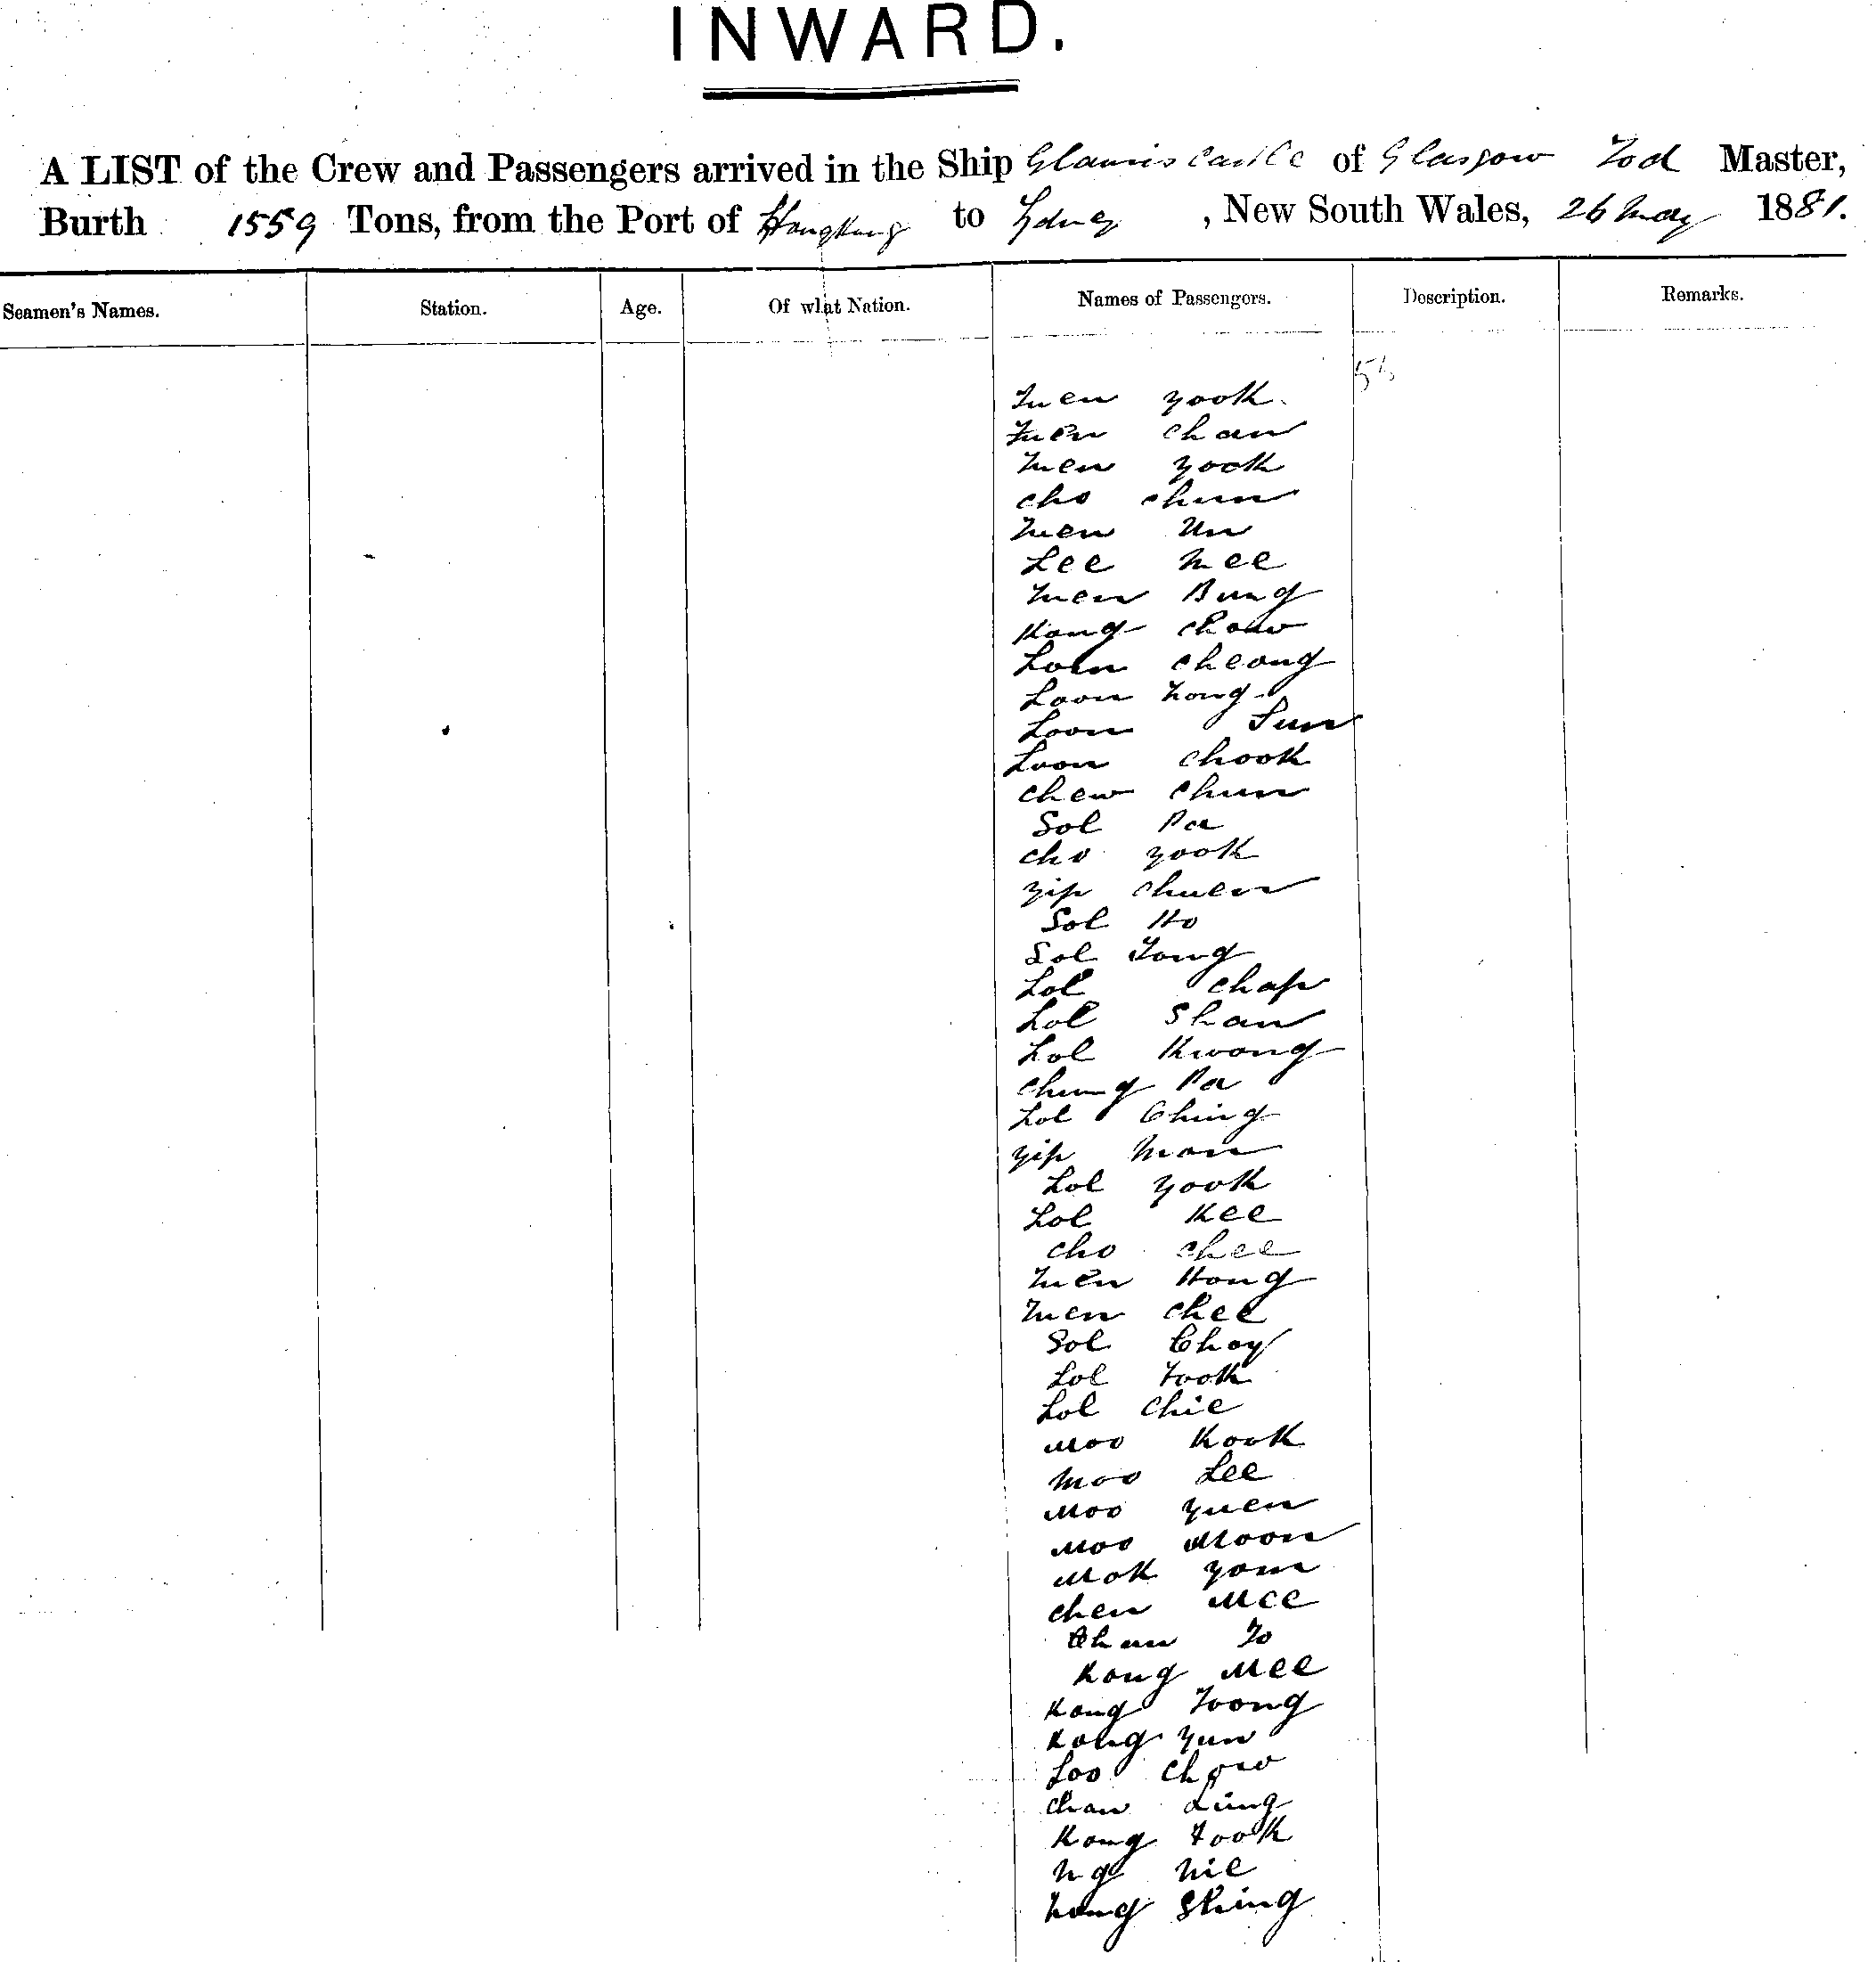 INWARD.
A LIST of the Crew and Passengers arrived in the Ship Glamis Castle of Glasgow Tod Master,
Burth 1559 Tons, from the Port of Hongkong to Sydney, New South Wales, 26 May 1881.
Seamen's Names. Station. Age. Of what Nation. Names of Passengers. Description. Remarks.
Yuen Yook
Yuen Chan
Yuen Yook
Cho Chun
Yuen Un
Lee Mee
Yuen Bung
Kong Chow
Loon Cheong
Loon Long
Loon Sun
Loon Chook
Chew Chun
Sol Pa
Cho Yook
Yip Chuen
Sol Ho
Sol Tong
Lol Chap
Lol Shan
Lol Kwong
Chung Pa
Lol Ching
Yip Mon
Lol Yook
Lol Kee
Cho Chee
Yuen Hong
Yuen Chee
Sol Choy
Lol Fook
Lol Chie
Moo Kook
Moo Lee
Moo Yuen
Moo Moon
Mok Yom
Chen Mee
Chan To
Kong Mee
Kong Foong
Kong Yun
Loo Chow
Chan Ling
Kong Fook
Ng Nie
Hong Shing